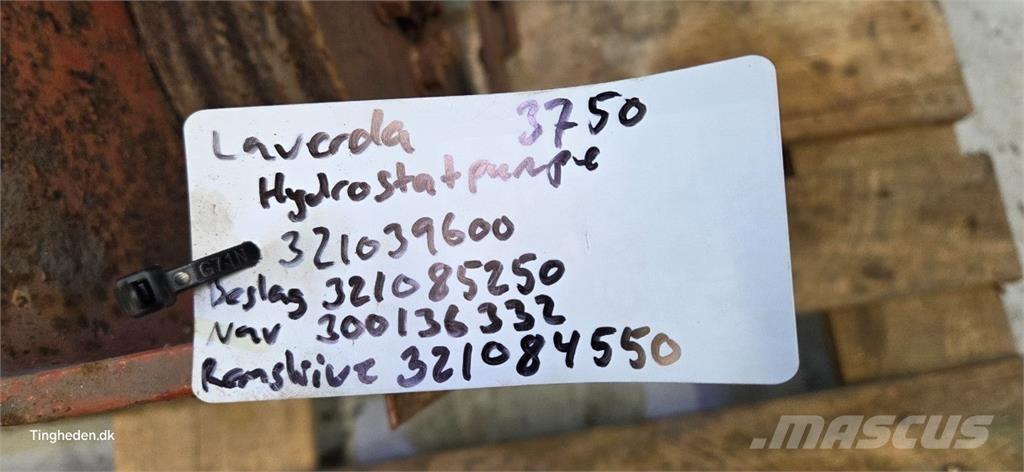 Laverda 3750
Hydrostatpumpe
321039600
Beslag 321085250
Nav 300136332
Remskive 321084550
Tingheden.dk
MASCUS